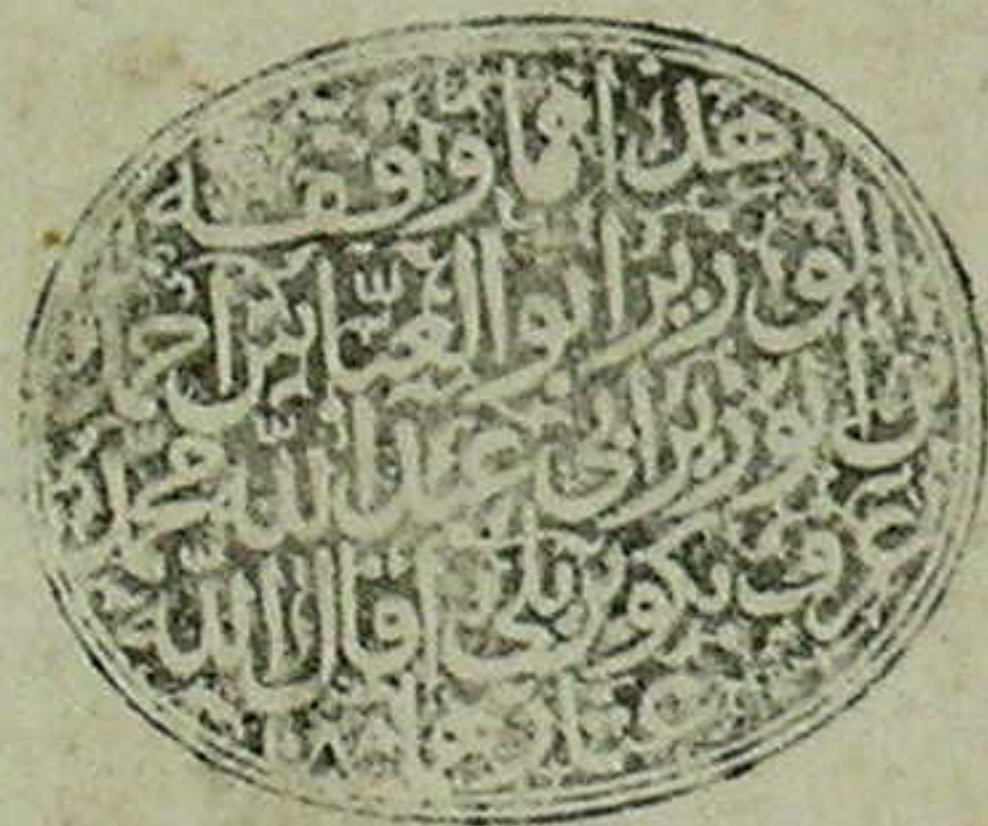 هذا مما وقفه
الوزير ابو العباس احمد
بن الوزير ابي عبد الله محمد
عرف بكوپريلى اقال الله
عثارهما
١٠٨٨